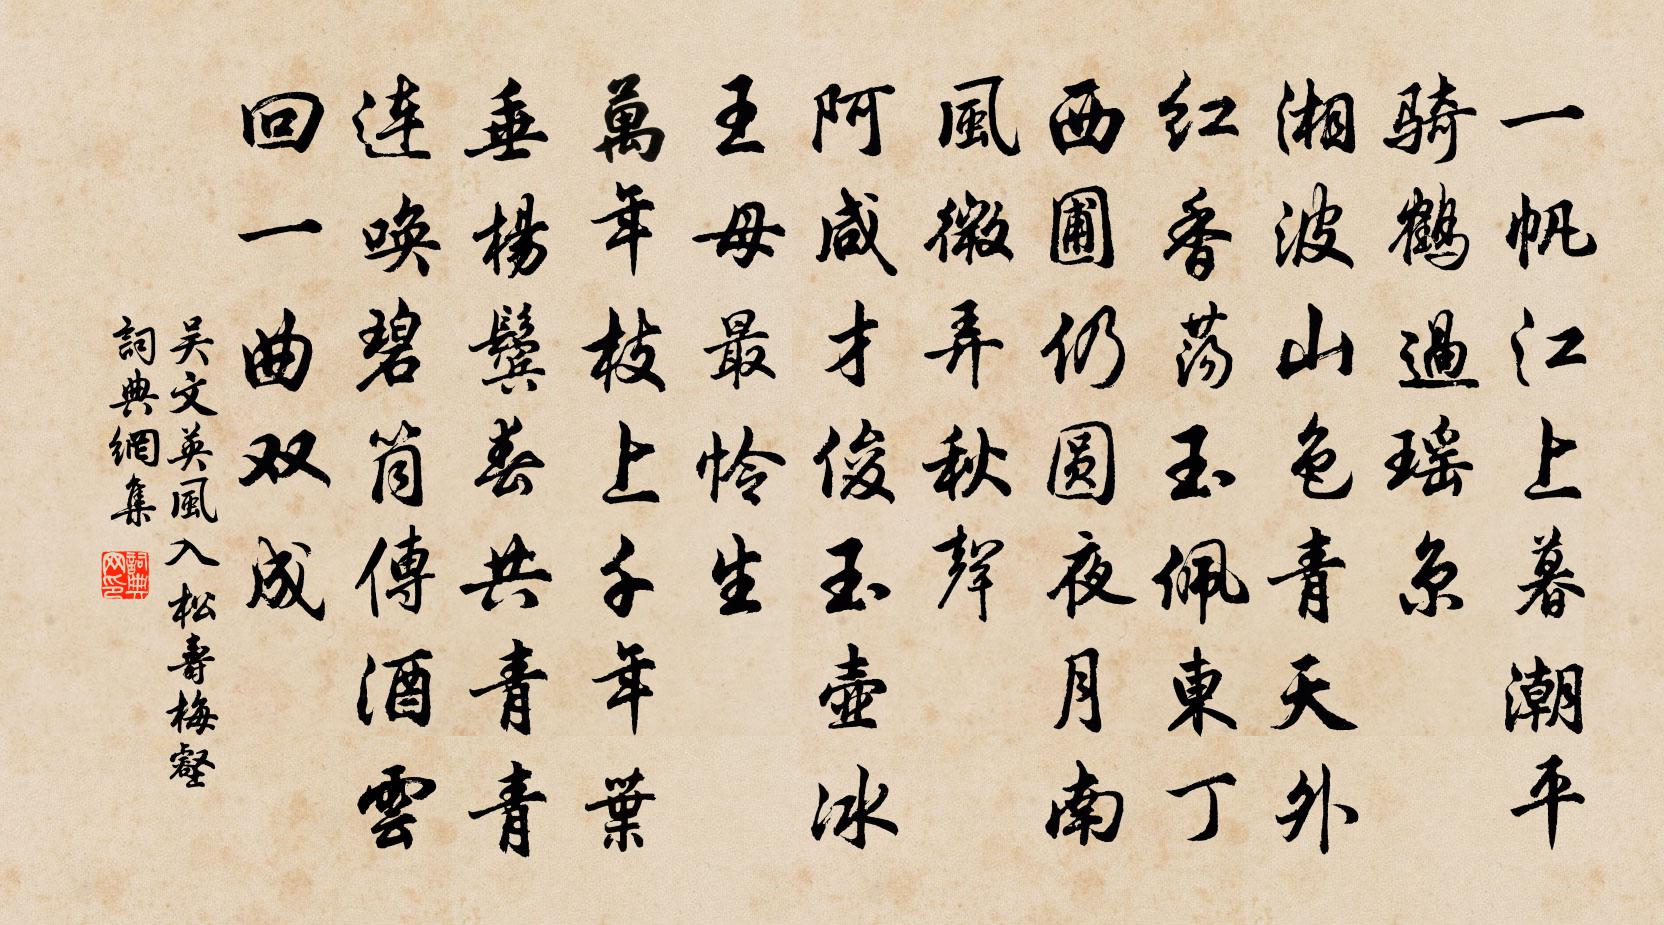 一帆江上暮潮平
骑鹤過瑶京
湘波山色青天外
红香荡玉佩東丁
西圃仍圆夜月南
風微弄秋聲
阿咸才俊玉壶冰
王母最怜生
萬年枝上千年葉
垂楊鬓春共青青
连唤碧筒傳酒雲
回一曲双成
吴文英風入松壽梅壑
詞典網集
詞典网印